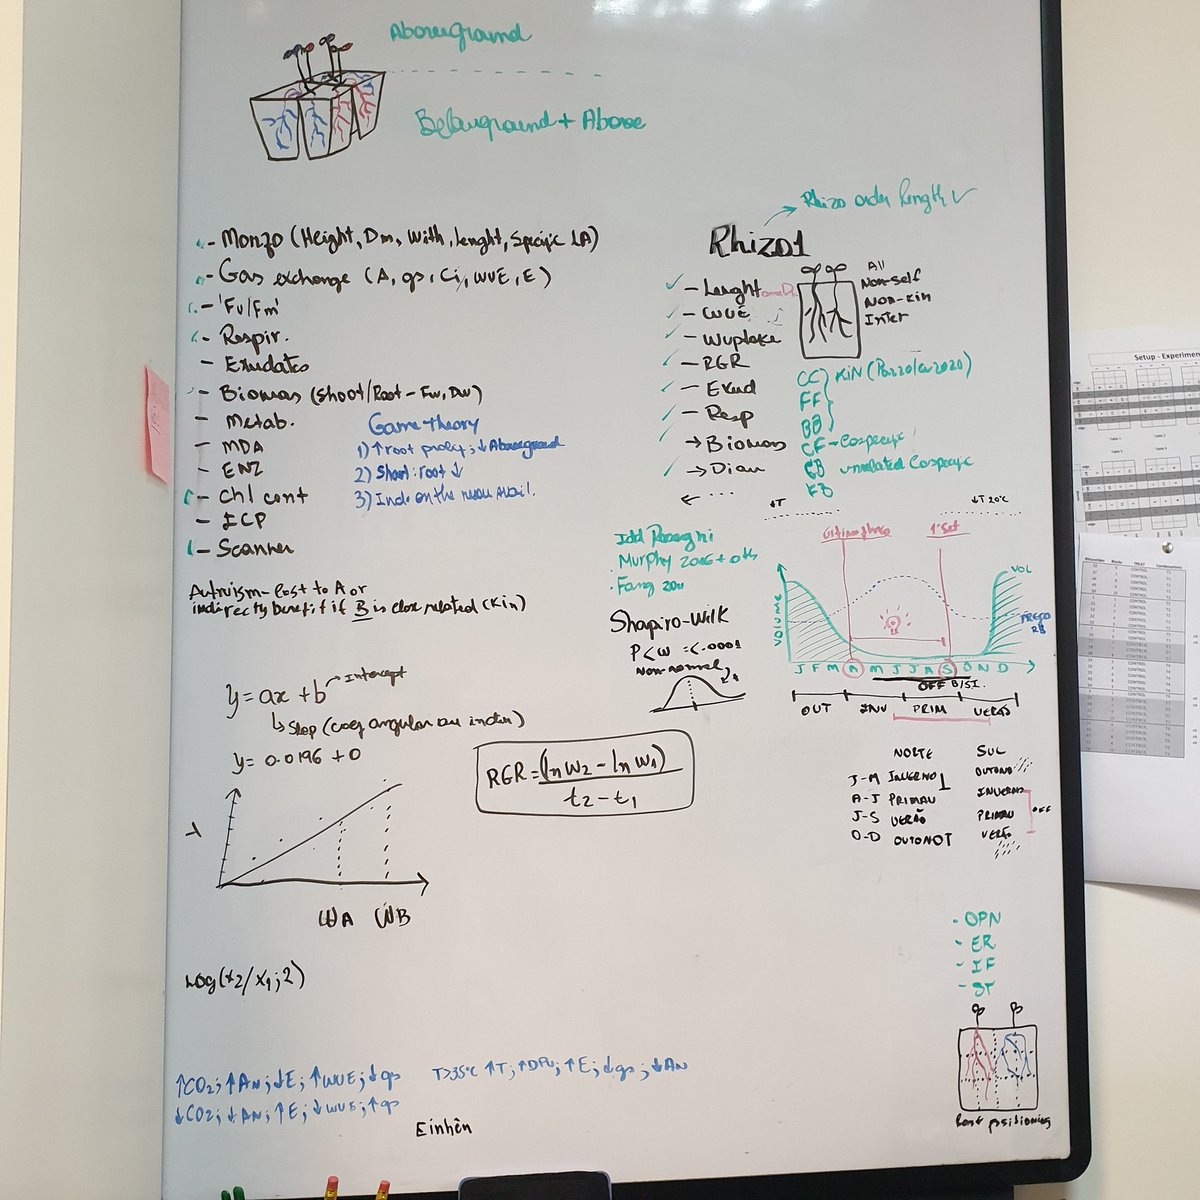 Aboveground
Belowground + Above
- Monzo (Height, Dm, With, lenght, Specific LA)
- Gas exchange (A, gs, Ci, WUE, E)
- 'Fv/Fm'
- Respir.
- Exudates
- Biomas (Shoot/Root - Fw, Dw)
- Metab.
- MDA
- ENZ
- Chl cont
- ICP
- Scanner
Game theory
1) ↑ root prolif; ↓ Aboveground
2) Shoot:root ↓
3) Inde on the resou avail.
Altruism - Cost to A or
indirectly benefit if B is close related (Kin)
y = ax + b
Intercept
↳ Slop (coef angular ou inclin)
y = 0.0196 + 0
Y
WA WB
RGR = (ln W2 - ln W1)
t2 - t1
Log(x2/x1;2)
↑CO2; ↑AN; ↓E; ↑WUE; ↓gs
↓CO2; ↓AN; ↑E; ↓WUE; ↑gs
T>35°C ↑T; ↑DPV; ↑E; ↓gs; ↓AN
Einhên
Rhizo order length ✓
Rhizo1
✓ - Lenght
✓ - WUE
✓ - Wuptake
✓ - RGR
✓ - Exud
✓ - Resp
✓ → Biomas
✓ → Diam
← ...
All
Non-self
Non-kin
Inter
CC
FF
BB
KIN
2020)
CF - Cospecific
CB unrelated Cospecific
FB
Murphy
Fang
Shapiro-Wilk
P<W = <.0001
Non-normal
↓T
↓T 20°C
1ª Set
VOLUME
VOL
PREÇO
R$
J F M A M J J A S O N D
OFF
OUT INV PRIM VERÃO
NORTE SUL
J-M INVERNO OUTONO
A-J PRIMAV INVERNO
J-S VERÃO PRIMAV
O-D OUTONO VERÃO
OFF
- OPN
- ER
- IF
- ST
B
Root positioning
Setup - Experiment
Table 1
Table 2
CONTROL